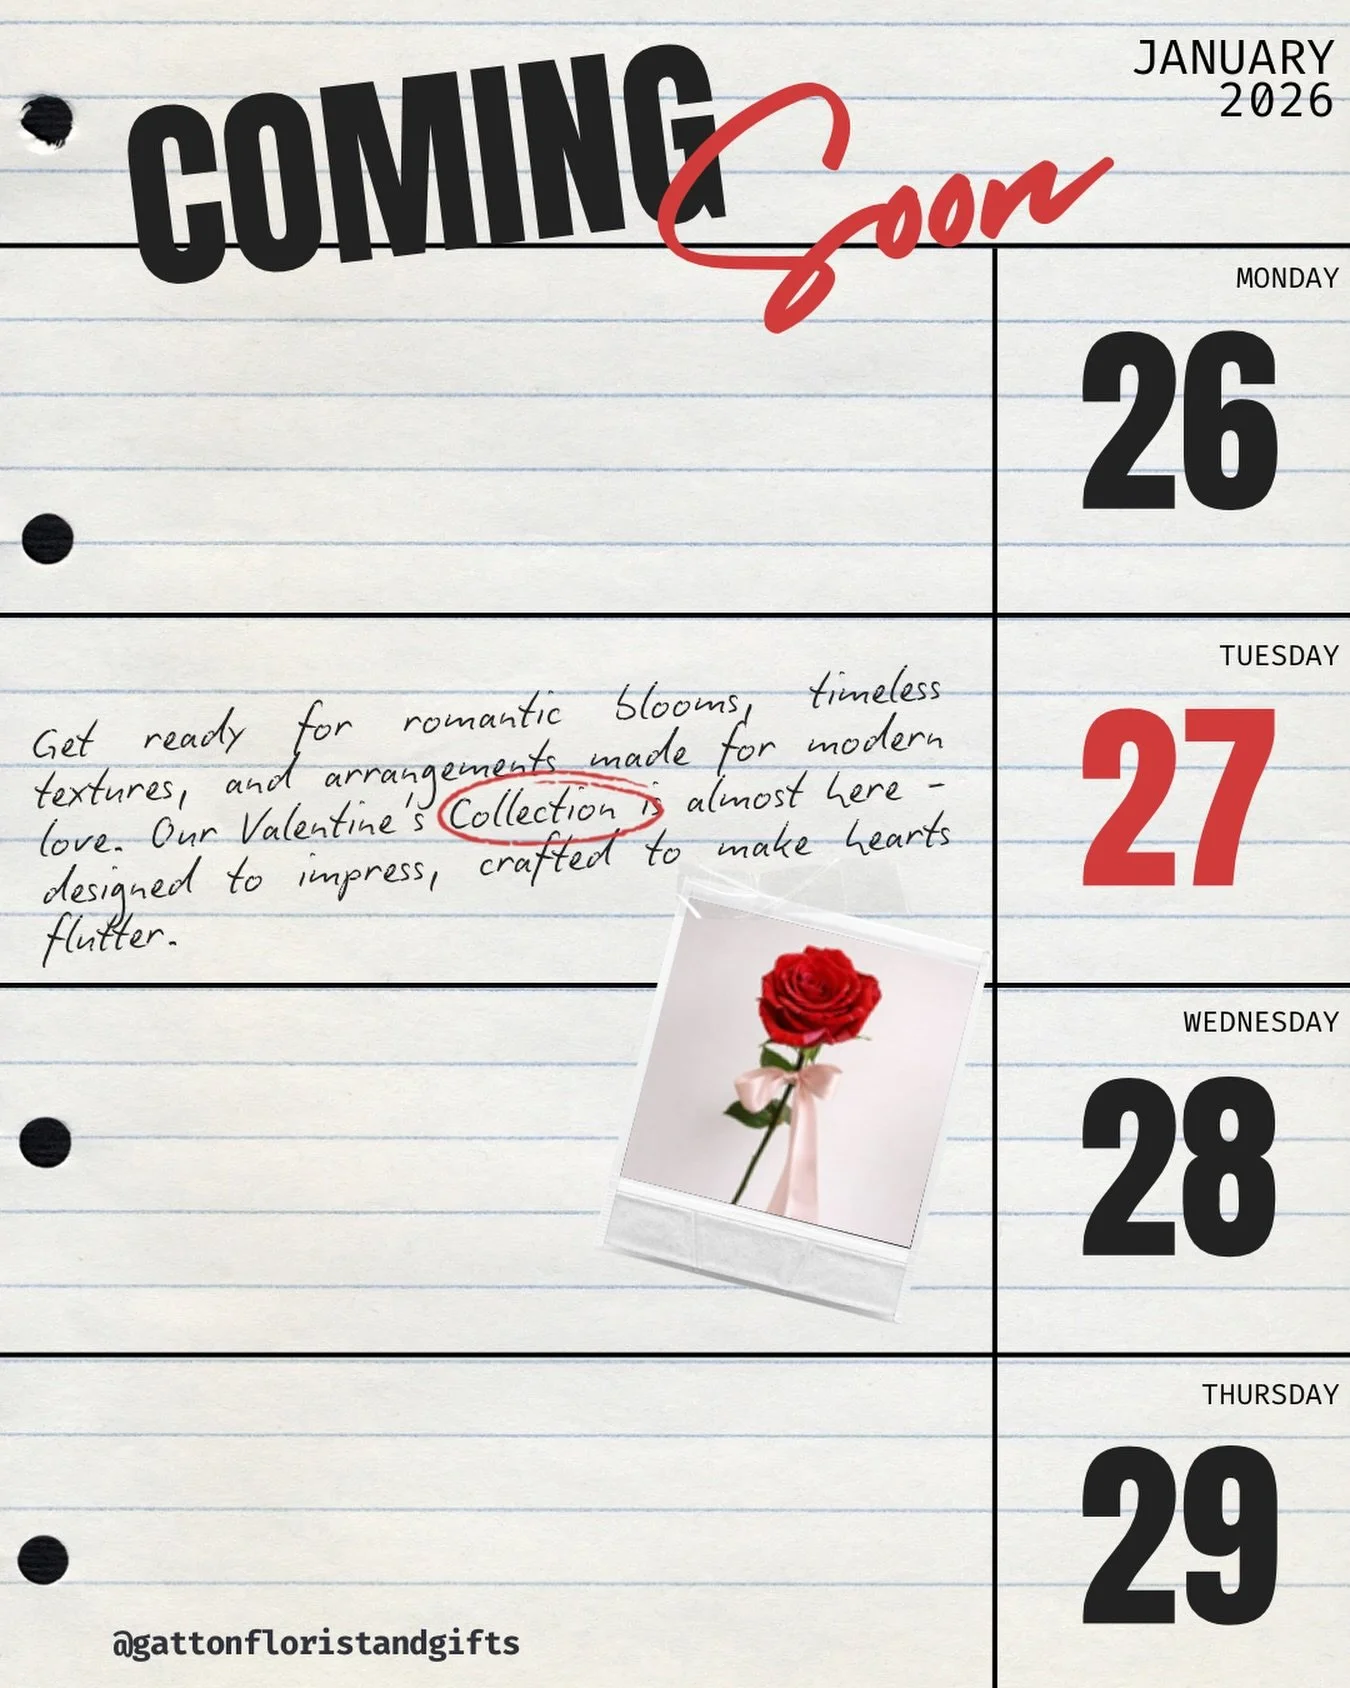 COMING Soon
JANUARY
2026
MONDAY
26
TUESDAY
27
Get ready for romantic blooms, timeless
textures, and arrangements made for modern
love. Our Valentine's Collection is almost here -
designed to impress, crafted to make hearts
flutter.
WEDNESDAY
28
THURSDAY
29
@gattonfloristandgifts